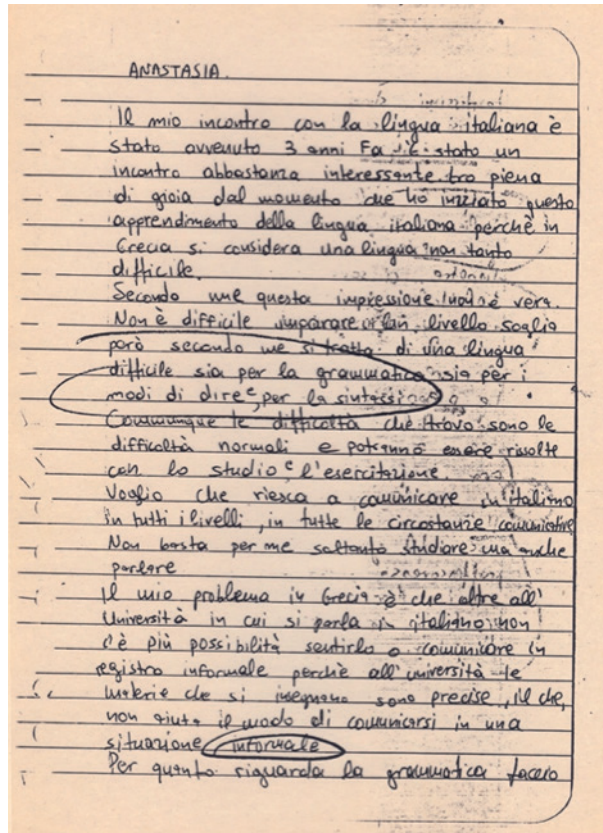 ANASTASIA.
Il mio incontro con la lingua italiana è
stato avvenuto 3 anni Fa. È stato un
incontro abbastanza interessante piena
di gioia dal momento che ho iniziato questo
apprendimento della lingua italiana perchè in
Grecia si considera una lingua non tanto
difficile.
Secondo me questa impressione non è vera.
Non è difficile imparare livello soglia
però secondo me si tratta di una lingua
difficile sia per la grammatica sia per i
modi di dire e per la sintassi
Communque le difficoltà che trovo sono le
difficoltà normali e potranno essere rissolte
con lo studio e l'esercitazione.
Voglio che riesca a comunicare in italiano
in tutti i livelli, in tutte le circostanze comunicative
Non basta per me soltanto studiare ma anche
parlare
Il mio problema in Grecia è che oltre all'
Università in cui si parla in italiano non
c'è più possibilità sentirlo o comunicare in
registro informale perchè all'università le
materie che si insegnano sono precise, il che,
non aiuta il modo di comunicarsi in una
situazione informale
Per quanto riguarda la grammatica faccio